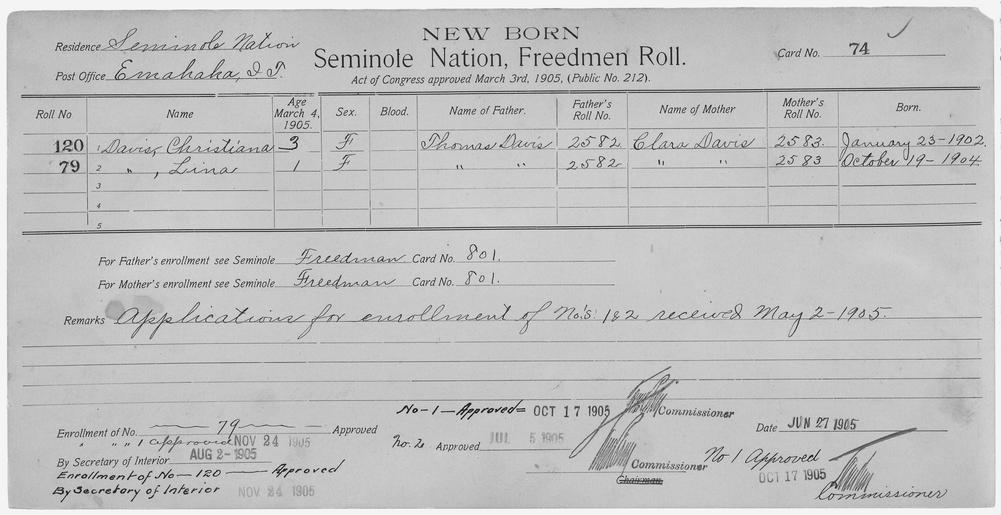 NEW BORN
Residence Seminole Nation
Seminole Nation, Freedmen Roll.
Card No. 74
Post Office Emahaka, I.T.
Act of Congress approved March 3rd, 1905, (Public No. 212).
Roll No Name Age March 4, 1905. Sex. Blood. Name of Father. Father's Roll No. Name of Mother Mother's Roll No. Born.
120 1 Davis, Christiana 3 F Thomas Davis 2582 Clara Davis 2583. January 23-1902.
79 2 " , Lina 1 F " " 2582 " " 2583 October 19-1904.
3
4
5
For Father's enrollment see Seminole Freedman Card No. 801.
For Mother's enrollment see Seminole Freedman Card No. 801.
Remarks Applications for enrollment of No's. 1&2 received May 2-1905.
No-1-Approved= OCT 17 1905 Commissioner
Enrollment of No. 79 Approved
Date JUN 27 1905
" " 1 approved NOV 24 1905
No. 2. Approved JUL 5 1905
Commissioner
Chairman
No 1 Approved
OCT 17 1905
Commissioner
By Secretary of Interior AUG 2-1905
Enrollment of No-120 Approved
By Secretary of Interior NOV 24 1905